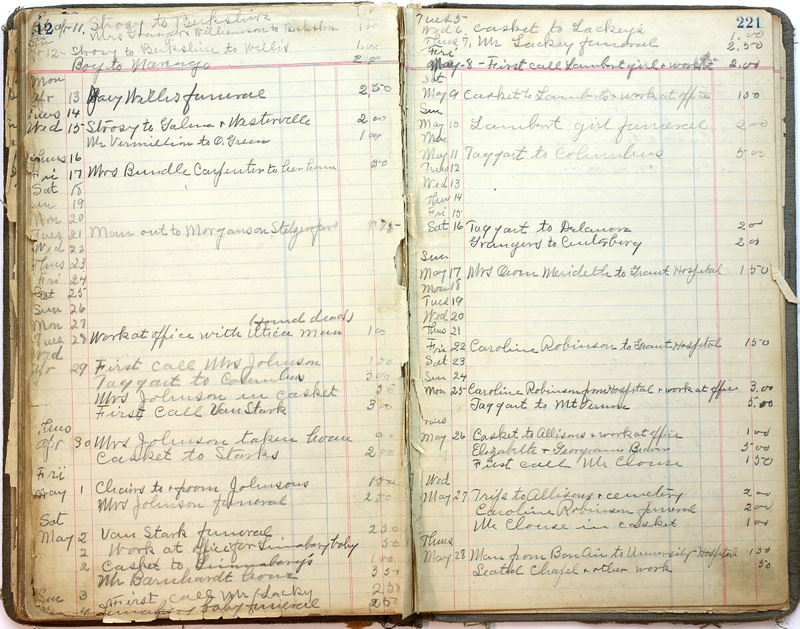 12
Apr 11, Strosy to Berkshire 1 00
Mrs Grangers Williamson to Berkshire 1 00
Apr 12 - Strosy to Berkshire to Willis 1.00
Boy to Nanago 2 00
Mon
Apr 13 Gary Willis funeral 2,50
Tues 14
Wed 15 Strosy to Galena + Westerville 2 00
Mr Vermillion to O. Green 1 00
Thurs 16
Fri 17 Mrs Bundle Carpenter to her home 50
Sat 18
Sun 19
Mon 20
Tues 21 Man out to Morganson Stelzer farm 75
Wed 22
Thurs 23
Fri 24
Sat 25
Sun 26
Mon 27 (found dead)
Tues 28 Work at office with Utica Man 1 00
Wed
Apr 29 First call Mrs Johnson 1 50
Taggart to Columbus 3 00
Mrs Johnson in casket
First Call Van Stark 3 00
Thus
Apr 30 Mrs Johnson taken home
Casket to Starks 2 00
Fri
May 1 Chairs to + from Johnsons 1 00
Mrs Johnson funeral 2 50
Sat
May 2 Van Stark funeral 2 50
2 Work at office for baby 50
2 Casket to 1 00
Mr Barnhardt 3 50
Sun 3 First Call Mr Lacky 2 50
4 baby funeral 2 50
221
Tues 5
Wed 6 Casket to Lackeys 1.00
Thurs 7, Mr Lackey funeral 2,50
Fri
May-8 - First call Lambert girl + work 2.00
Sat
May 9 Casket to Lamberts + work at office 1 50
Sun
May 10 Lambert girl funeral 2 00
Mon
May 11 Taggart to Columbus 5 00
Tues 12
Wed 13
Thus 14
Fri 15
Sat 16 Taggart to Delaware 2 00
Grangers to Centerburg 2 00
Sun
May 17 Mrs Merideth to Grant Hospital 1 50
Mon 18
Tues 19
Wed 20
Thus 21
Fri 22 Caroline Robinson to Grant Hospital 1 50
Sat 23
Sun 24
Mon 25 Caroline Robinson from Hospital + work at office 3.00
Taggart to Mt Vernon 5.00
Tues
May 26 Casket to Allisons + work at office 1 00
Elizabeth + Georgeanna 5 00
First call Mr Clouse 1 50
Wed
May 27 Trips to Allisons + cemetery 2 00
Caroline Robinson funeral 2 00
Mr Clouse in casket 1 00
Thurs
May 28 Man from Bon Air to University Hospital 1 50
Seated Chapel + other work 50